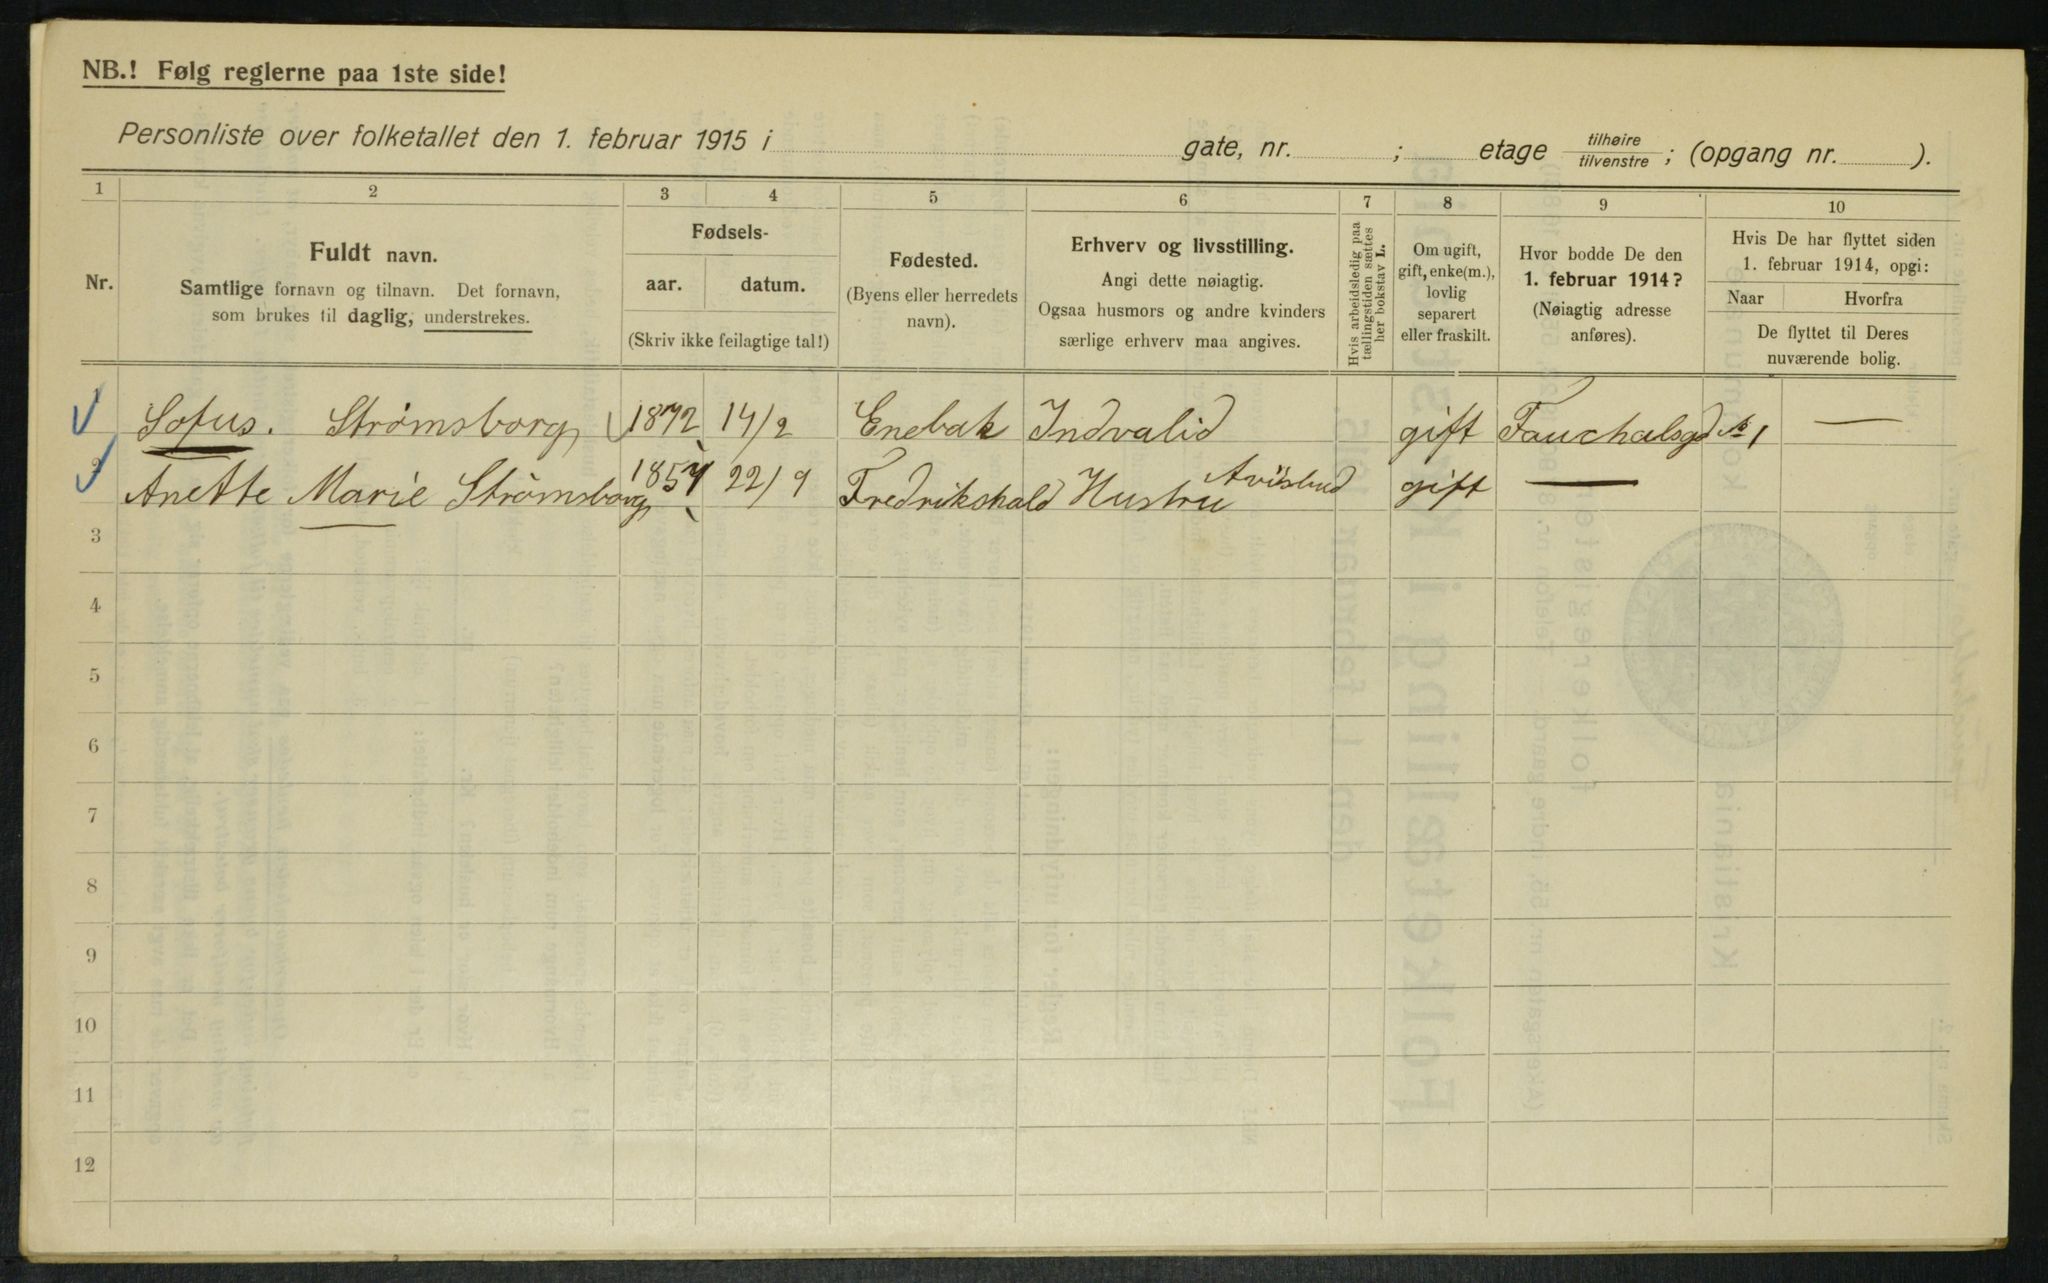 NB.! Følg reglerne paa 1ste side!
Personliste over folketallet den 1. februar 1915 i gate, nr. ; etage tilhøire tilvenstre ; (opgang nr. ).
1 2 3 4 5 6 7 8 9 10
Nr.
Fuldt navn.
Samtlige fornavn og tilnavn. Det fornavn,
som brukes til daglig, understrekes.
Fødsels-
aar. datum.
(Skriv ikke feilagtige tal!)
Fødested.
(Byens eller herredets
navn).
Erhverv og livsstilling.
Angi dette nøiagtig.
Ogsaa husmors og andre kvinders
særlige erhverv maa angives.
Hvis arbeidsledig paa
tællingstiden sættes
her bokstav L.
Om ugift,
gift, enke(m.),
lovlig
separert
eller fraskilt.
Hvor bodde De den
1. februar 1914?
(Nøiagtig adresse
anføres).
Hvis De har flyttet siden
1. februar 1914, opgi:
Naar Hvorfra
De flyttet til Deres
nuværende bolig.
1 Sofus. Strømsborg 1872 14/2 Enebak Indvalid gift Fauchalsgd № 1 —
2 Anette Marie Strømsborg 1857 22/9 Fredrikshald Hustru Avisbud gift —
3
4
5
6
7
8
9
10
11
12